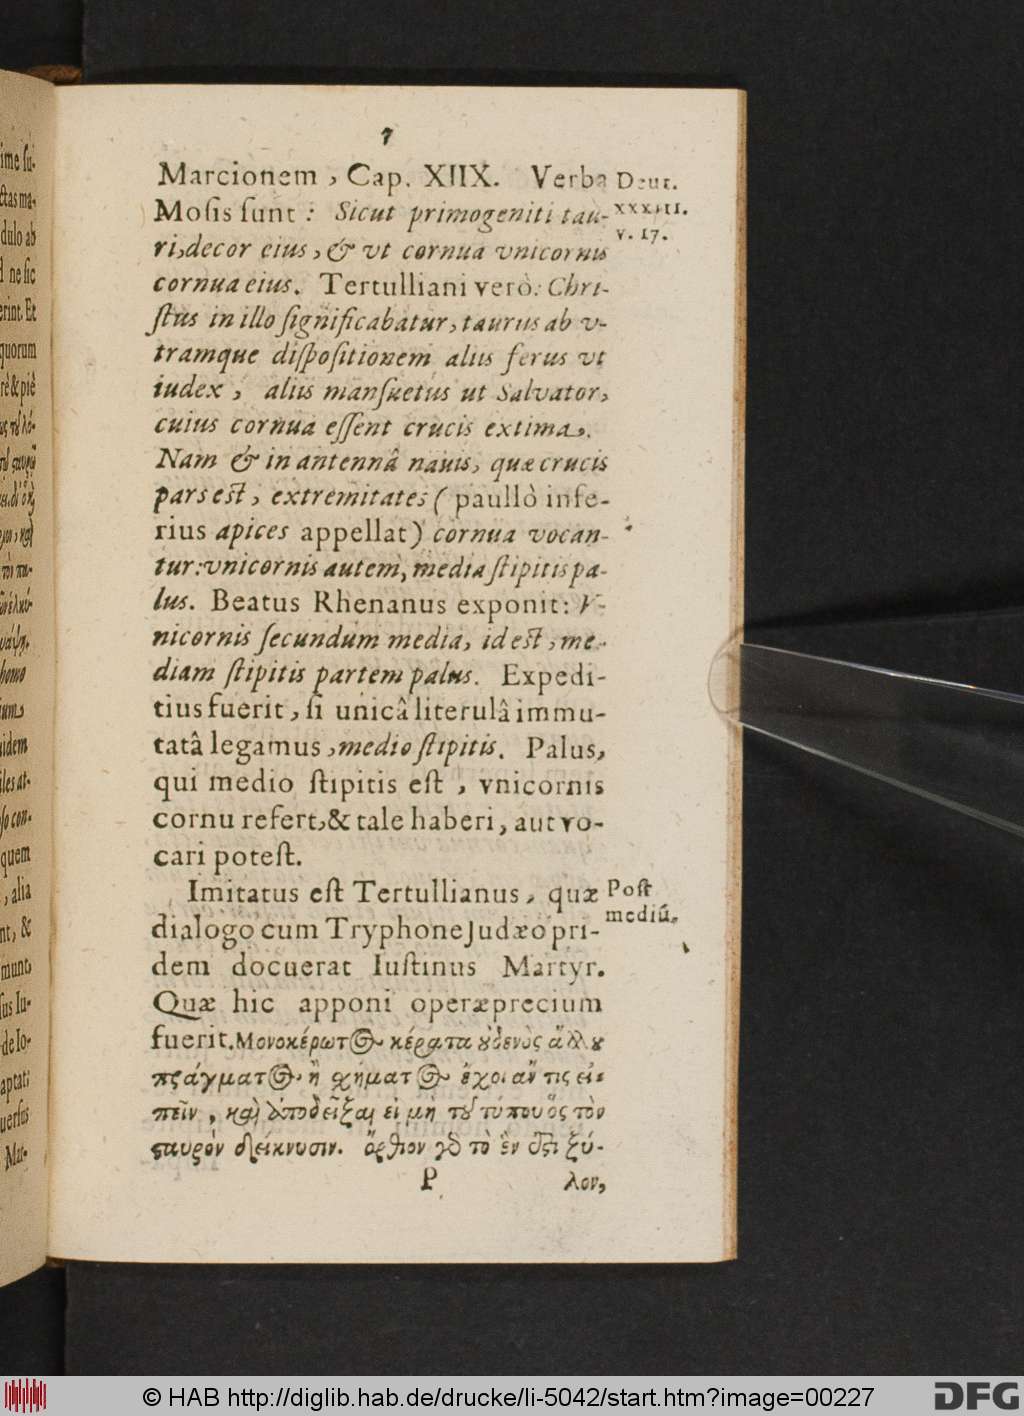 7
Marcionem, Cap. XIIX. Verba
Deut.
Mosis sunt: Sicut primogeniti tau-
XXXIII.
v. 17.
ri, decor eius, & vt cornua vnicornis
cornua eius. Tertulliani verò: Chri-
stus in illo significabatur, taurus ab v-
tramque dispositionem aliis ferus vt
iudex, aliis mansuetus ut Salvator,
cuius cornua essent crucis extima.
Nam & in antennâ navis, quæ crucis
pars est, extremitates (paullò infe-
rius apices appellat) cornua vocan-
tur: vnicornis autem, media stipitis pa-
lus. Beatus Rhenanus exponit: V-
nicornis secundum media, id est, me-
diam stipitis partem palus. Expedi-
tius fuerit, si unicâ literulâ immu-
tatâ legamus, medio stipitis. Palus,
qui medio stipitis est, vnicornis
cornu refert, & tale haberi, aut vo-
cari potest.
Imitatus est Tertullianus, quæ
Post
mediū.
dialogo cum Tryphone Judæo pri-
dem docuerat Iustinus Martyr.
Quæ hic apponi operæprecium
fuerit. Μονοκέρωτος κέρατα οὐδενὸς ἄλλου
πράγματος ἢ σχήματος ἔχοι ἄν τις εἰ-
πεῖν, καὶ ἀποδεῖξαι εἰ μὴ τοῦ τύπου ὃς τὸν
σταυρὸν δείκνυσιν. ὄρθιον γὰρ τὸ ἓν ἐστι ξύ-
P
λον,
ime su-
ctas ma-
dulo ab
ne sic
erint. Et
quorum
rè & piè
homo
ium,
uidem
iles at-
so con-
quem
, alia
nt, &
munc,
sus Iu-
de Io-
aptat:
uersus
Mar-
© HAB http://diglib.hab.de/drucke/li-5042/start.htm?image=00227
DFG